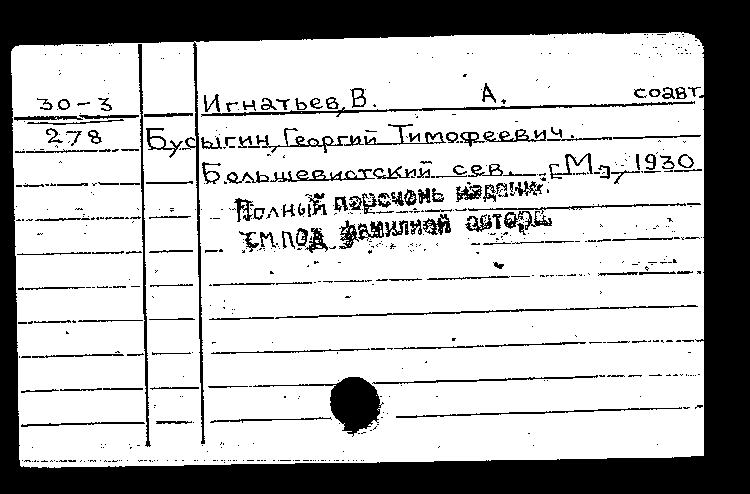 30-3 Игнатьев, В. А. соавт.
278 Бусыгин, Георгий Тимофеевич.
Большевистский сев. [М.], 1930
Полный перечень издании
см. под фамилией автора